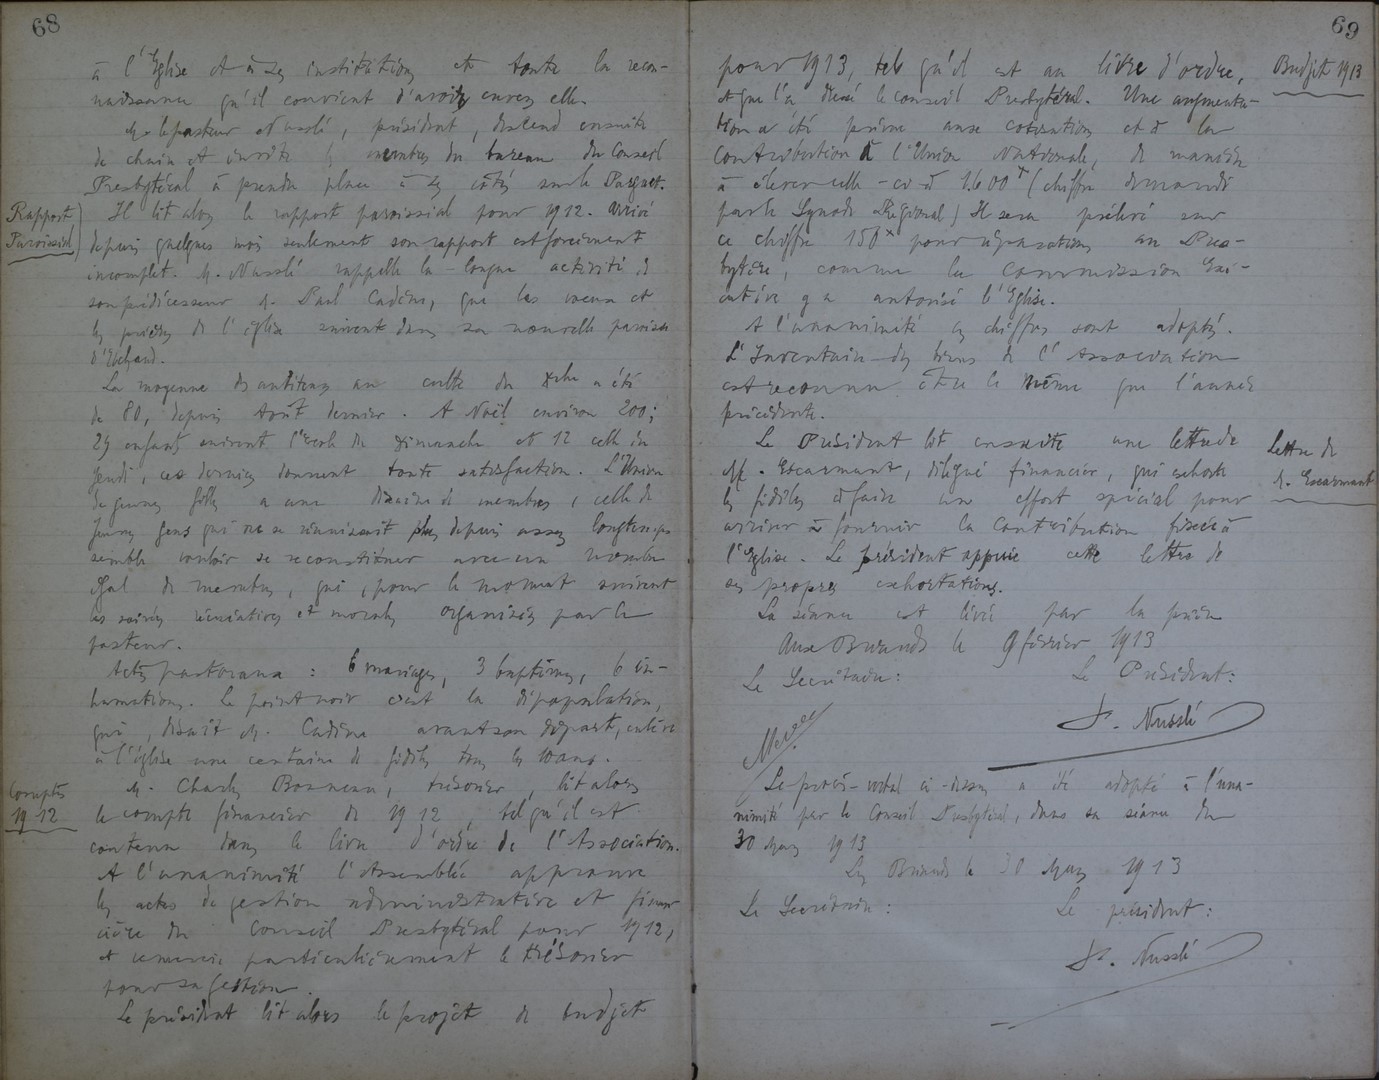 68
à l'Eglise et à ses institutions et toute la recon-
naissance qu'il convient d'avoir envers elle.
M. le pasteur Nusslé, président, descend ensuite
de chaire et invite les membres du bureau du Conseil
Presbytéral à prendre place à ses côtés sur le Parquet.
Rapport
Paroissial
Il lit alors le rapport paroissial pour 1912. Arrivé
depuis quelques mois seulement son rapport est forcément
incomplet. M. Nusslé rappelle la longue activité de
son prédécesseur M. Paul Cadène, que les voeux et
les prières de l'église suivent dans sa nouvelle paroisse
La moyenne des auditeurs au culte du Dche a été
de 80, depuis Août dernier. A Noël environ 200;
29 enfants suivent l'Ecole du Dimanche et 12 celle du
jeudi, ces derniers donnent toute satisfaction. L'Union
de jeunes filles a une dizaine de membres, celle de
jeunes gens qui ne se réunissait plus depuis assez longtemps
semble vouloir se reconstituer avec un nombre
égal de membres, qui, pour le moment suivent
les soirées récréatives et morales organisées par le
pasteur.
Actes pastoraux : 6 mariages, 3 baptêmes, 6 in-
humations. Le point noir c'est la dépopulation,
qui, disait M. Cadène avant son départ, enlève
à l'église une centaine de fidèles tous les 10 ans.
Comptes
1912
M. Charles Bonneau, trésorier, lit alors
le compte financier de 1912, tel qu'il est
contenu dans le livre d'ordre de l'Association.
A l'unanimité l'Assemblée approuve
les actes de gestion administrative et finan-
cière du Conseil Presbytéral pour 1912,
et remercie particulièrement le trésorier
pour sa gestion.
Le président lit alors le projet de budget
69
pour 1913, tel qu'il est au livre d'ordre,
Budjet 1913
et que l'a dressé le conseil Presbytéral. Une augmenta-
tion a été prévue aux cotisations et à la
Contribution à l'Union Nationale, de manière
à élever celle-ci à 1.600f (chiffre demandé
par le Synode Régional) Il sera prélevé sur
ce chiffre 150f pour réparations au Pres-
bytère, comme la Commission Exé-
cutive y a autorisé l'Eglise.
A l'unanimité ces chiffres sont adoptés.
L'Inventaire des biens de l'Association
est reconnu être le même que l'année
précédente.
Le Président lit ensuite une lettre de
Lettre de
M. Escarmant
M. Escarmant, délégué financier, qui exhorte
les fidèles à faire un effort spécial pour
arriver à fournir la Contribution fixée à
l'Eglise. Le président appuie cette lettre de
ses propres exhortations.
La séance est levée par la prière
Aux Briands le 9 février 1913
Le Secrétaire :
Le Président :
J. Nusslé
Le procès-verbal ci-dessus a été adopté à l'una-
nimité par le Conseil Presbytéral, dans sa séance du
30 Mars 1913
Les Briands le 30 Mars 1913
Le Secrétaire :
Le président :
J. Nusslé